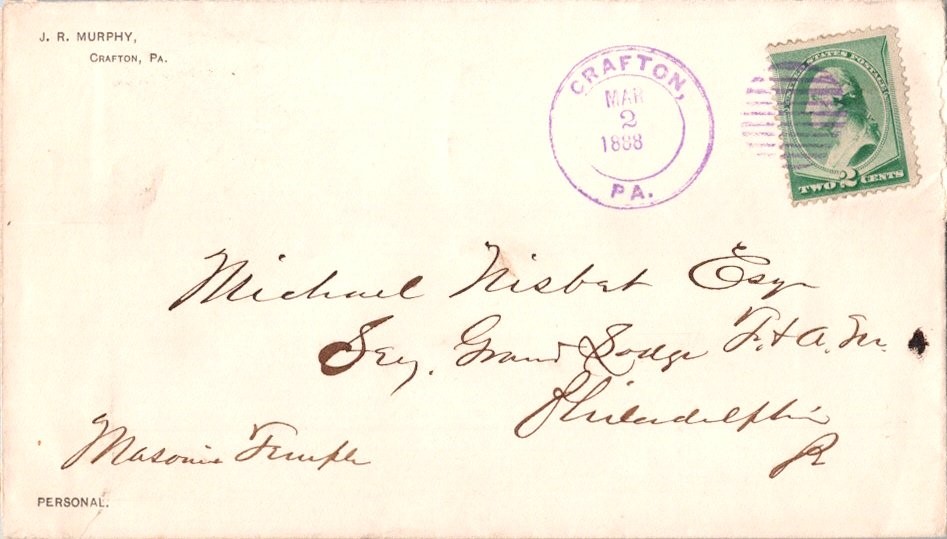 J. R. MURPHY,
CRAFTON, PA.
CRAFTON,
MAR
2
1888
PA.
UNITED STATES POSTAGE
TWO 2 CENTS
Michael Nisbet Esqr
Secy. Grand Lodge F. & A. M.
Philadelphia
Pa
Masonic Temple
PERSONAL.